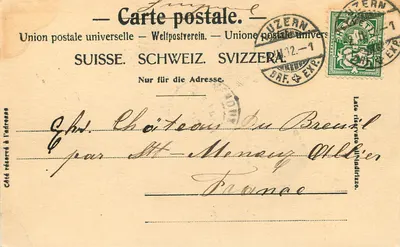 Carte postale.
Union postale universelle. — Weltpostverein. — Unione postale univers
SUISSE. SCHWEIZ. SVIZZERA.
Nur für die Adresse.
LUZERN
12.—1
BRF. EXP.
Chs. Château Du Breuil
par St-Menoux Allier
France
Côté réservé à l'adresse
Lato riservato all'indirizzo.